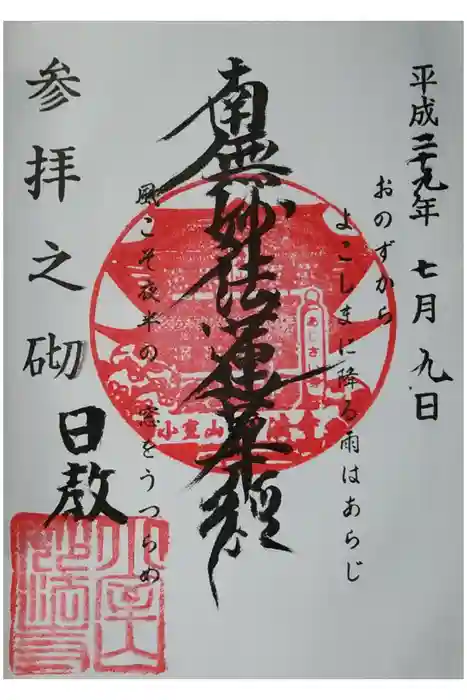 平成二十九年 七月九日
おのずから
よこしまに降る雨はあらじ
南無妙法蓮華経
風こそ夜半の窓をうつらめ
参拝之砌
日
あじさ
小室山 法寺
小室山
妙法寺